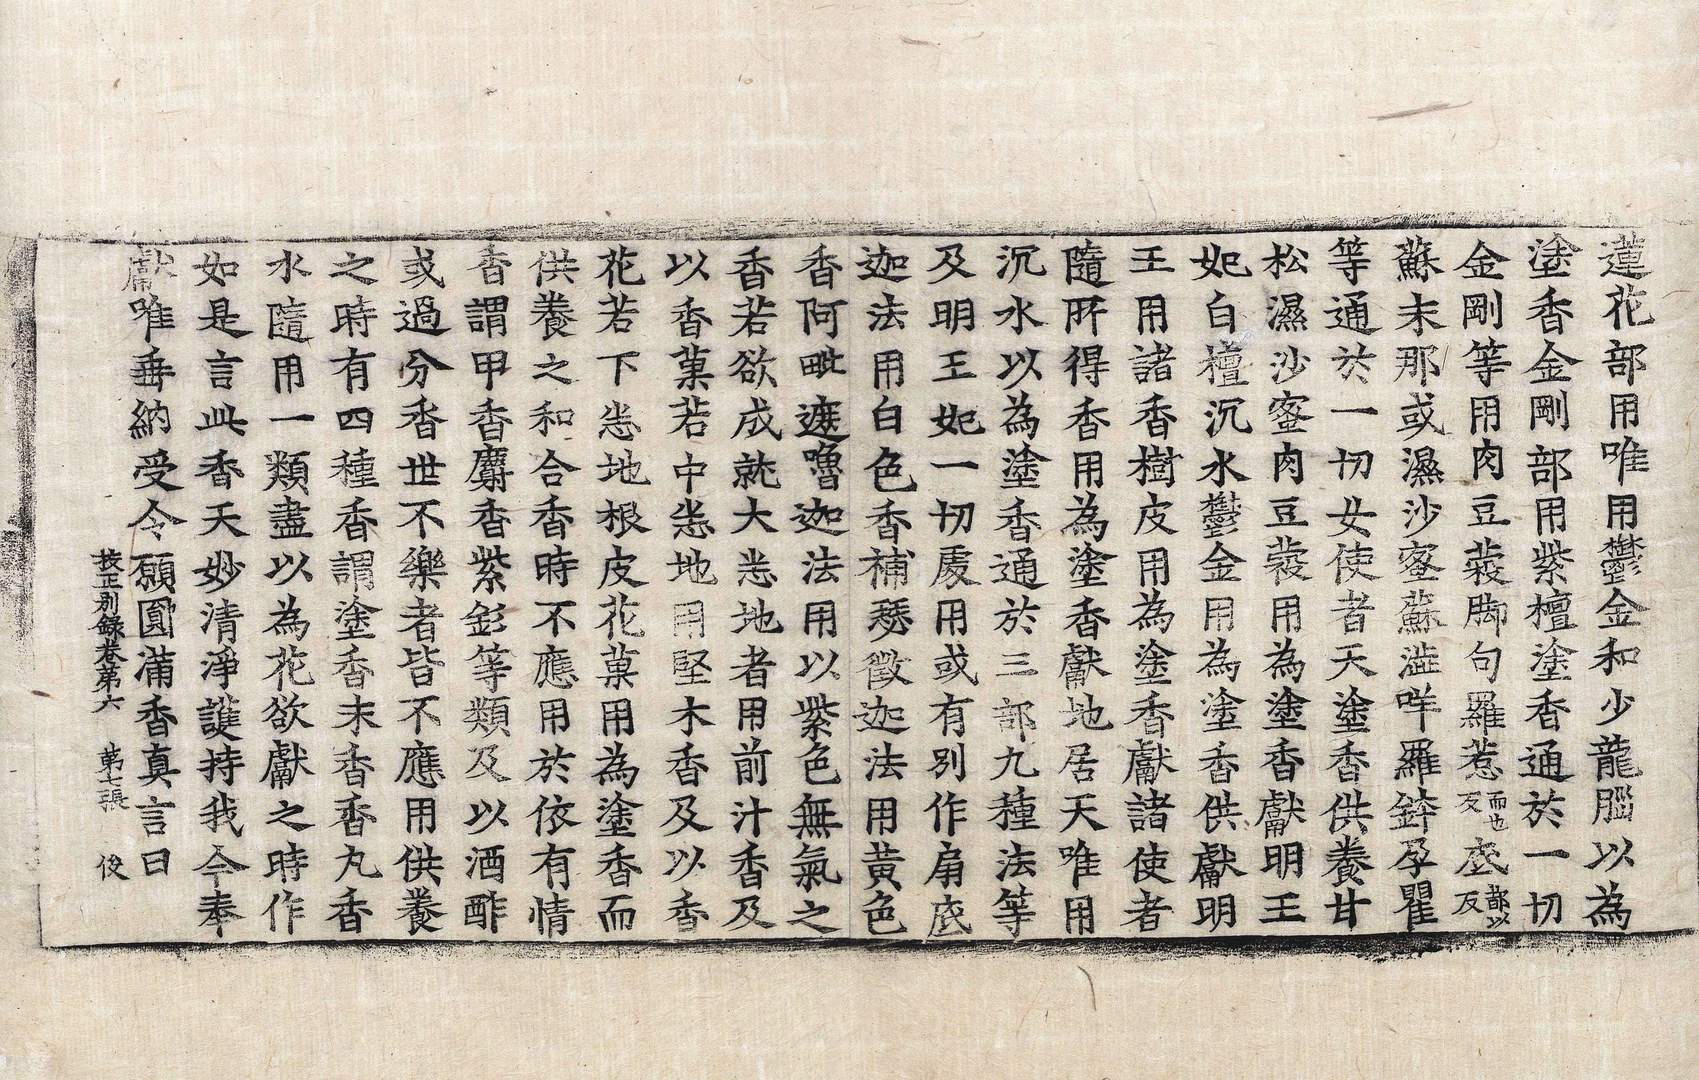 蓮花部用唯用鬱金和少龍腦以為
塗香金剛部用紫檀塗香通於一切
金剛等用肉豆蔲脚句羅惹而也反底都以反
蘇末那或濕沙蜜蘇澁咩羅鉢孕瞿
等通於一切女使者天塗香供養甘
松濕沙蜜肉豆蔲用為塗香獻明王
妃白檀沉水鬱金用為塗香供獻明
王用諸香樹皮用為塗香獻諸使者
隨所得香用為塗香獻地居天唯用
沉水以為塗香通於三部九種法等
及明王妃一切處用或有別作扇底
迦法用白色香補瑟徵迦法用黃色
香阿毗遮嚕迦法用以紫色無氣之
香若欲成就大悉地者用前汁香及
以香菓若中悉地用堅木香及以香
花若下悉地根皮花菓用為塗香而
供養之和合香時不應用於依有情
香謂甲香麝香紫釤等類及以酒酢
或過分香世不樂者皆不應用供養
之時有四種香謂塗香末香香丸香
水隨用一類盡以為花欲獻之時作
如是言此香天妙清淨護持我今奉
獻唯垂納受令願圓滿香真言曰
校正別錄卷第六　第七張　俊